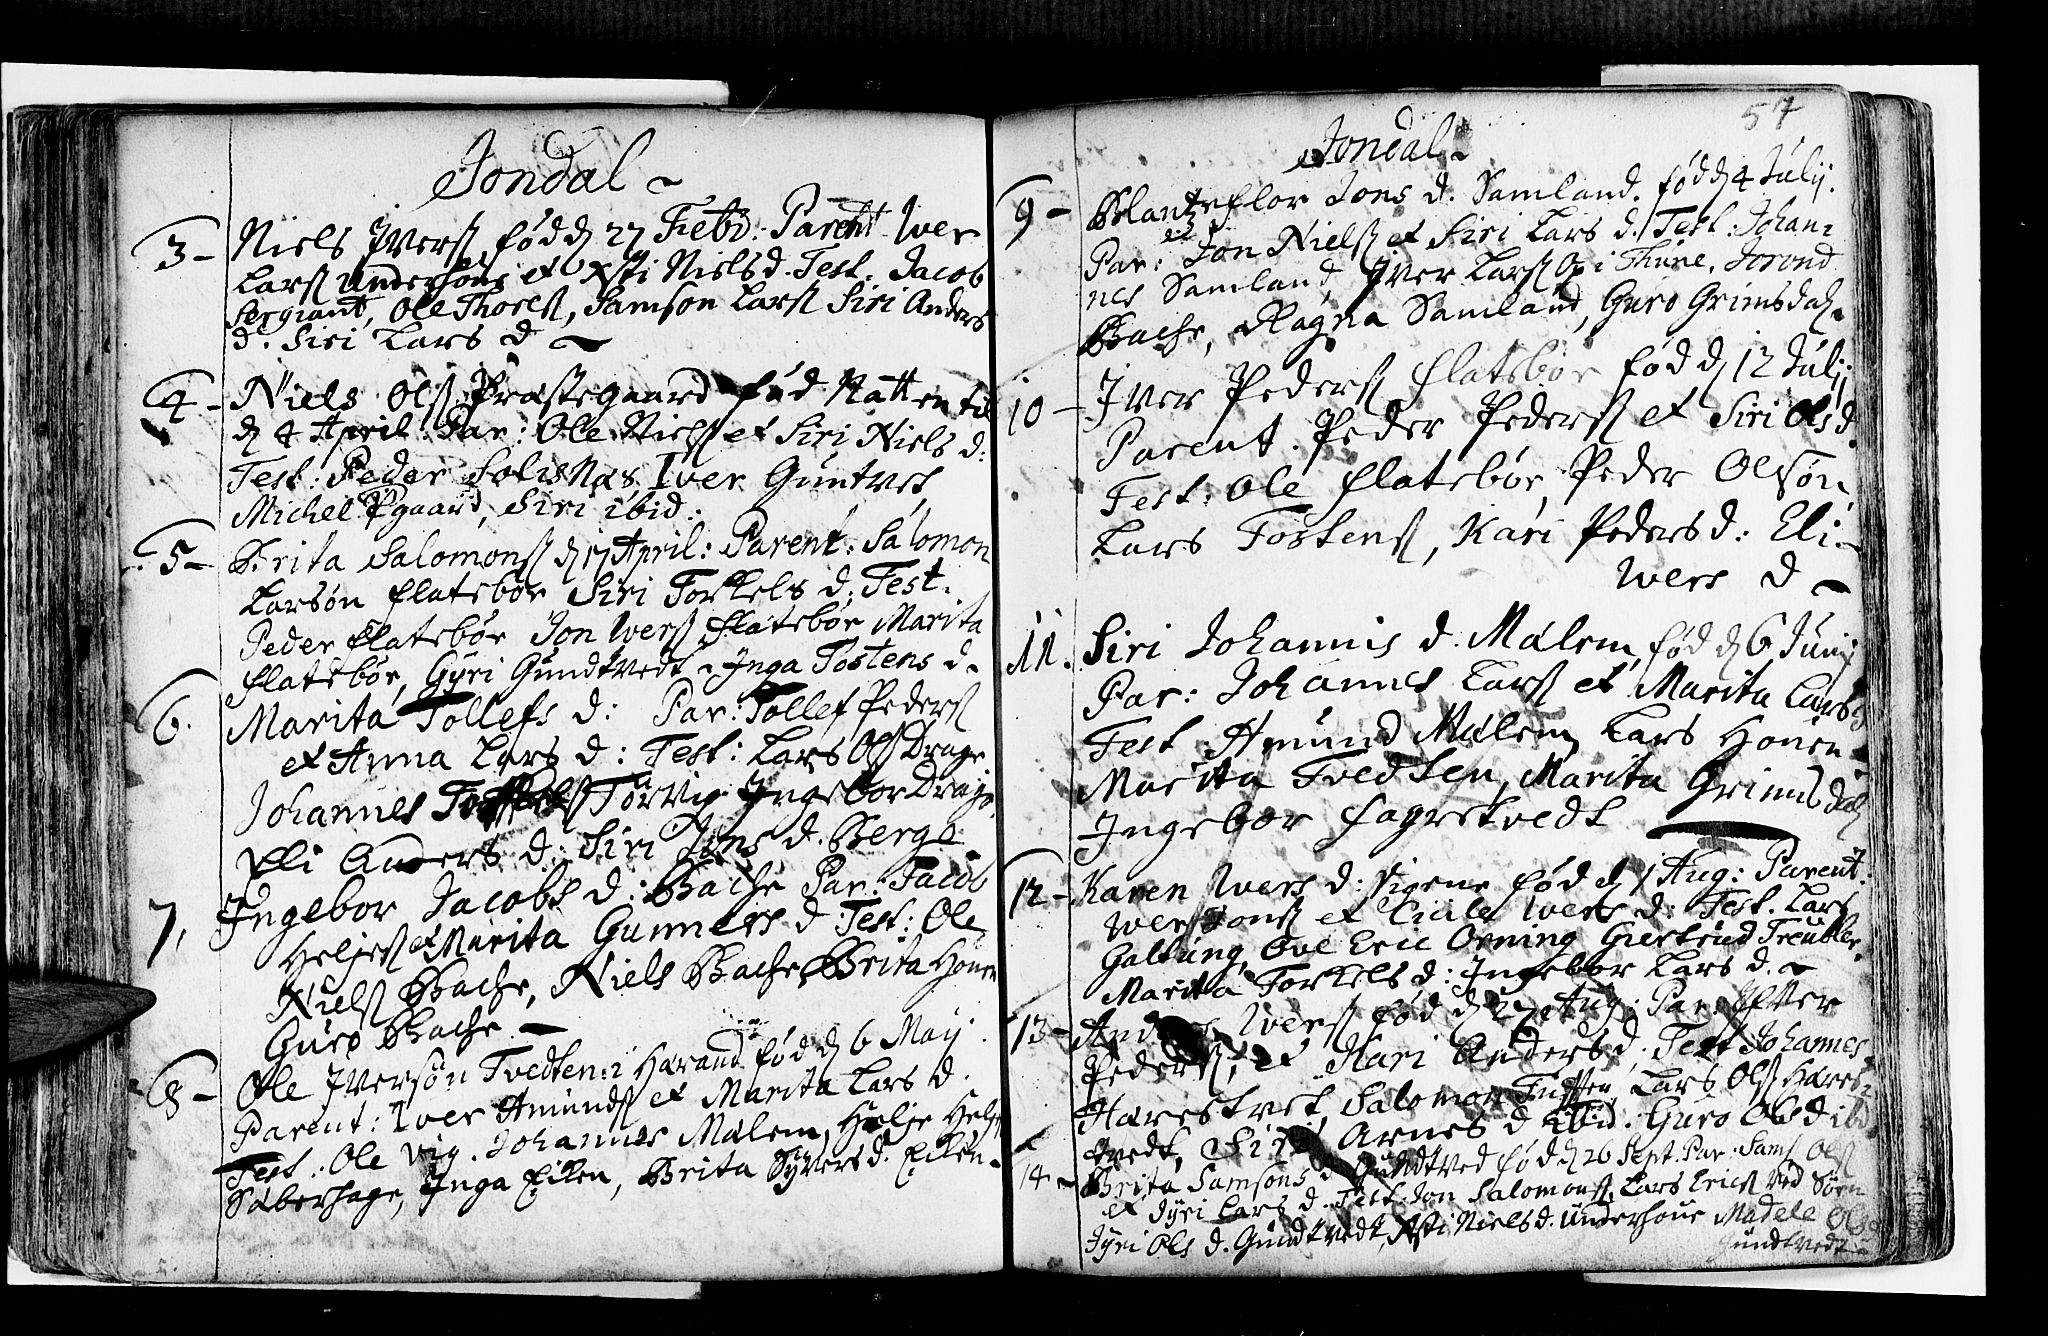 Jondal
3 - Niels Iverss fød d 27 Febr: Parent Iver
Larss Underhoug et Xsti Nielsd. Test: Jacob
Sergiant, Ole Thorss, Samson Larss Siri Anders
d. Siri Lars d
4 - Niels Olss Præstegaard fød Natten til
d 4 April Par: Ole Nielss et Siri Niels d:
Test: Peder Solisnæs Iver Guntvet
Michel Pgaard, Siri ibid:
5 - Brita Salomonss d 17 April: Parent: Salomon
Larsøn Flatebøe Siri Torkels d: Test:
Peder Flatebøe Jon Iverss Flatebøe Marita
Flatebøe, Gyri Gundtvedt Inga Tostens d
6. Marita Tollefs d: Par: Tollef Pederss
et Anna Lars d: Test: Lars Olss Drage
Johannes Torvig Ingebor Drage
Eli Anders d: Siri Jons d. Berge
7, Ingebor Jacobs d: Bache Par: Jacob
Heljess et Marita Gunners d Test: Ole
Nielss Bache, Niels Bache, Brita Houen
Guro Bache
8 - Ole Iversøn Tvedten i Harand fød d 6 May
Parent: Iver Amundss et Marita Lars d.
Test: Ole Vig. Johannes Malem, Helje Helje
Saberhage, Inga Eiken, Brita Syvers d. Eiken
57
Jondal
9 - Blantzeflor Jons d. Samland. fød d 4 Julij.
Par: Jon Nielss et Siri Lars d. Test: Johan=
nes Samland, Iver Larss i Thune, Jorond
Bache, Ragna Samland, Guro Grimsdal
10 - Iver Pederss Flatebøe fød d 12 Julij
Parent. Peder Pederss et Siri Ols d.
Test: Ole Flatebøe, Peder Olsøn,
Lars Tostenss, Kari Peders d: Eli
Ivers d
11. Siri Johannis d. Malem, fød d 6 Junij
Par: Johannes Larss et Marita Lars d
Test Amund Malem Lars Houen
Marita Tvedten, Marita Grimsdal
Ingebor Fagretvedt
12 - Karen Ivers d: Vigene fød d 1 Aug: Parent:
Iver Jonss et Ivers d: Test. Lars
Galtung, Ove Eric Orning Giertrud Treubler
Marita Torkels d: Ingebor Lars d.
13 - Iverss fød d 27 Aug: Par: Iver
Pederss, et Kari Anders d. Test Johannes
Harestvet, Salomon Lars Olss Hares=
tvedt, Siri Arnes d ibid. Guro Ols d ibid
14 - Brita Samsons d Gundtved fød d 26 Sept. Par: Sams Olss
et Jyri Lars d. Test: Jon Salomonss, Lars Ericss ved Søen
Jyri Ols d. Gundtvedt, Xsti Niels d. Underhoue Madele Ols
Gundtvedt